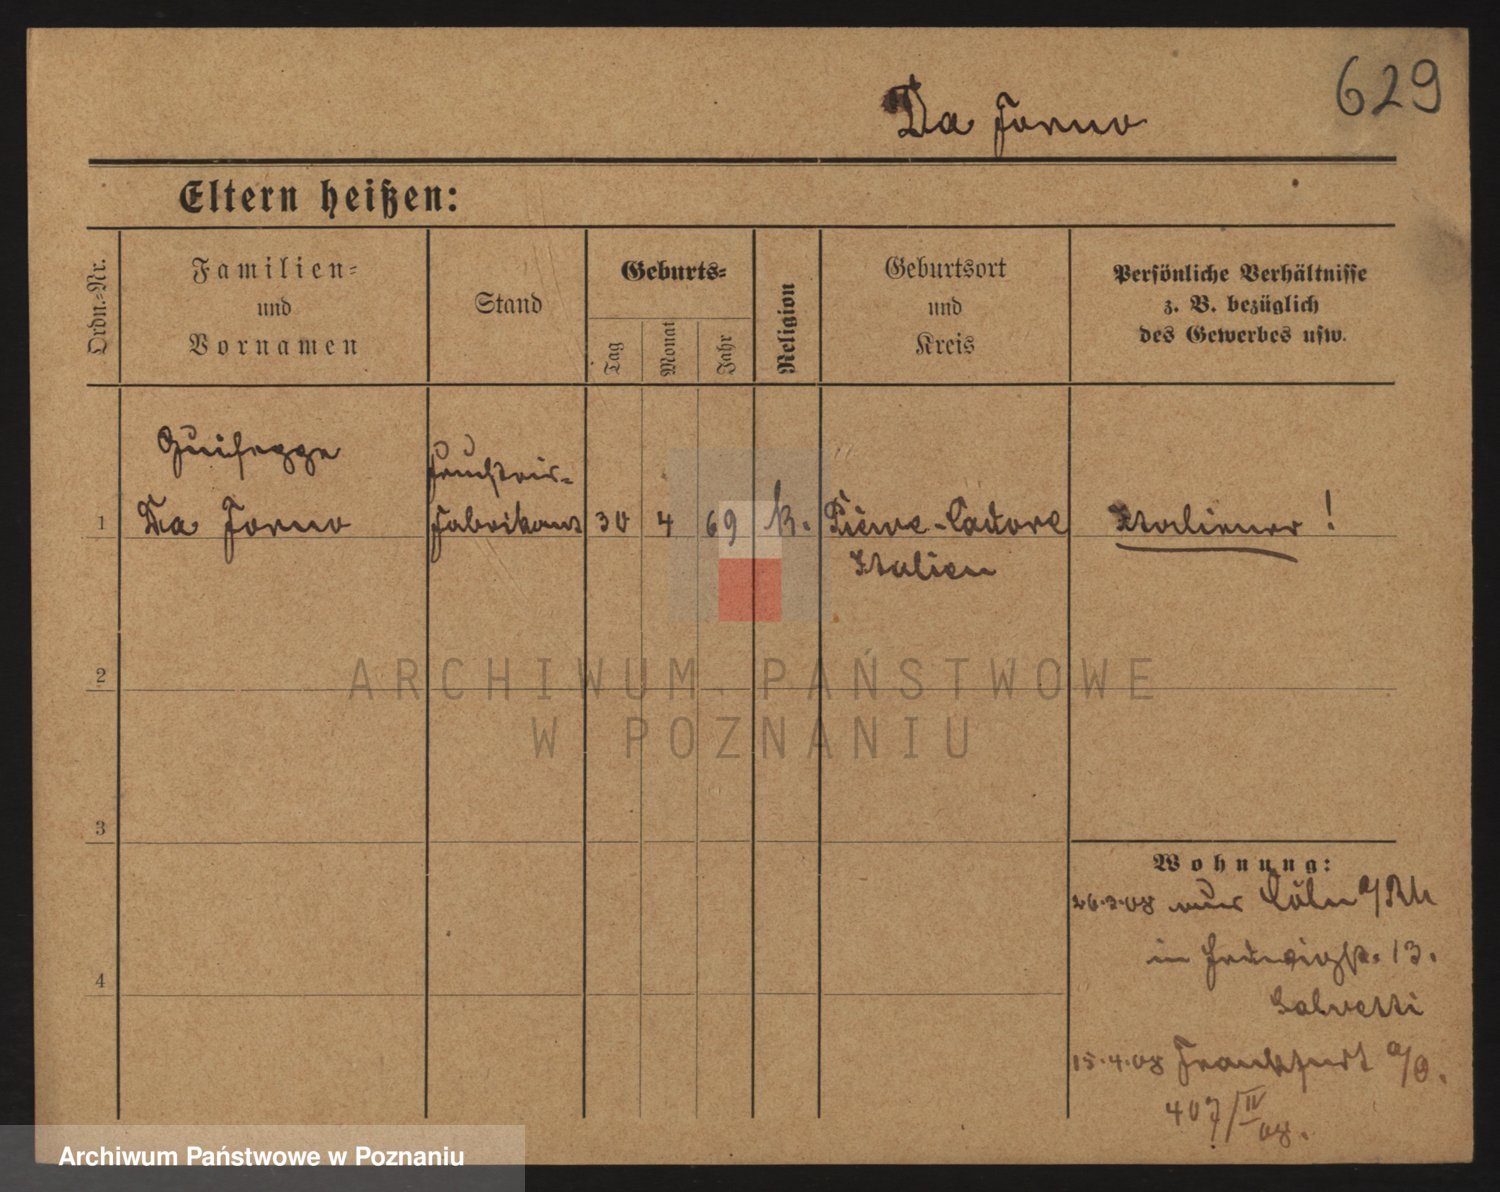 629
Da Forno
Eltern heißen:
Ordn.=Nr.
Familien=
und
Vornamen
Stand
Geburts=
Tag
Monat
Jahr
Religion
Geburtsort
und
Kreis
Persönliche Verhältnisse
z. B. bezüglich
des Gewerbes usw.
Guiseppe
1 Da Forno Fabrikant 30 4 69 k. Pieve-Cadore Italiener!
Italien
2
3
4
Wohnung:
26.3.08 aus Cöln a/Rh
in Hedwigstr. 13.
Salvetti
15.4.08 Frankfurt a/O.
407/IV 08.
ARCHIWUM PAŃSTWOWE
W POZNANIU
Archiwum Państwowe w Poznaniu